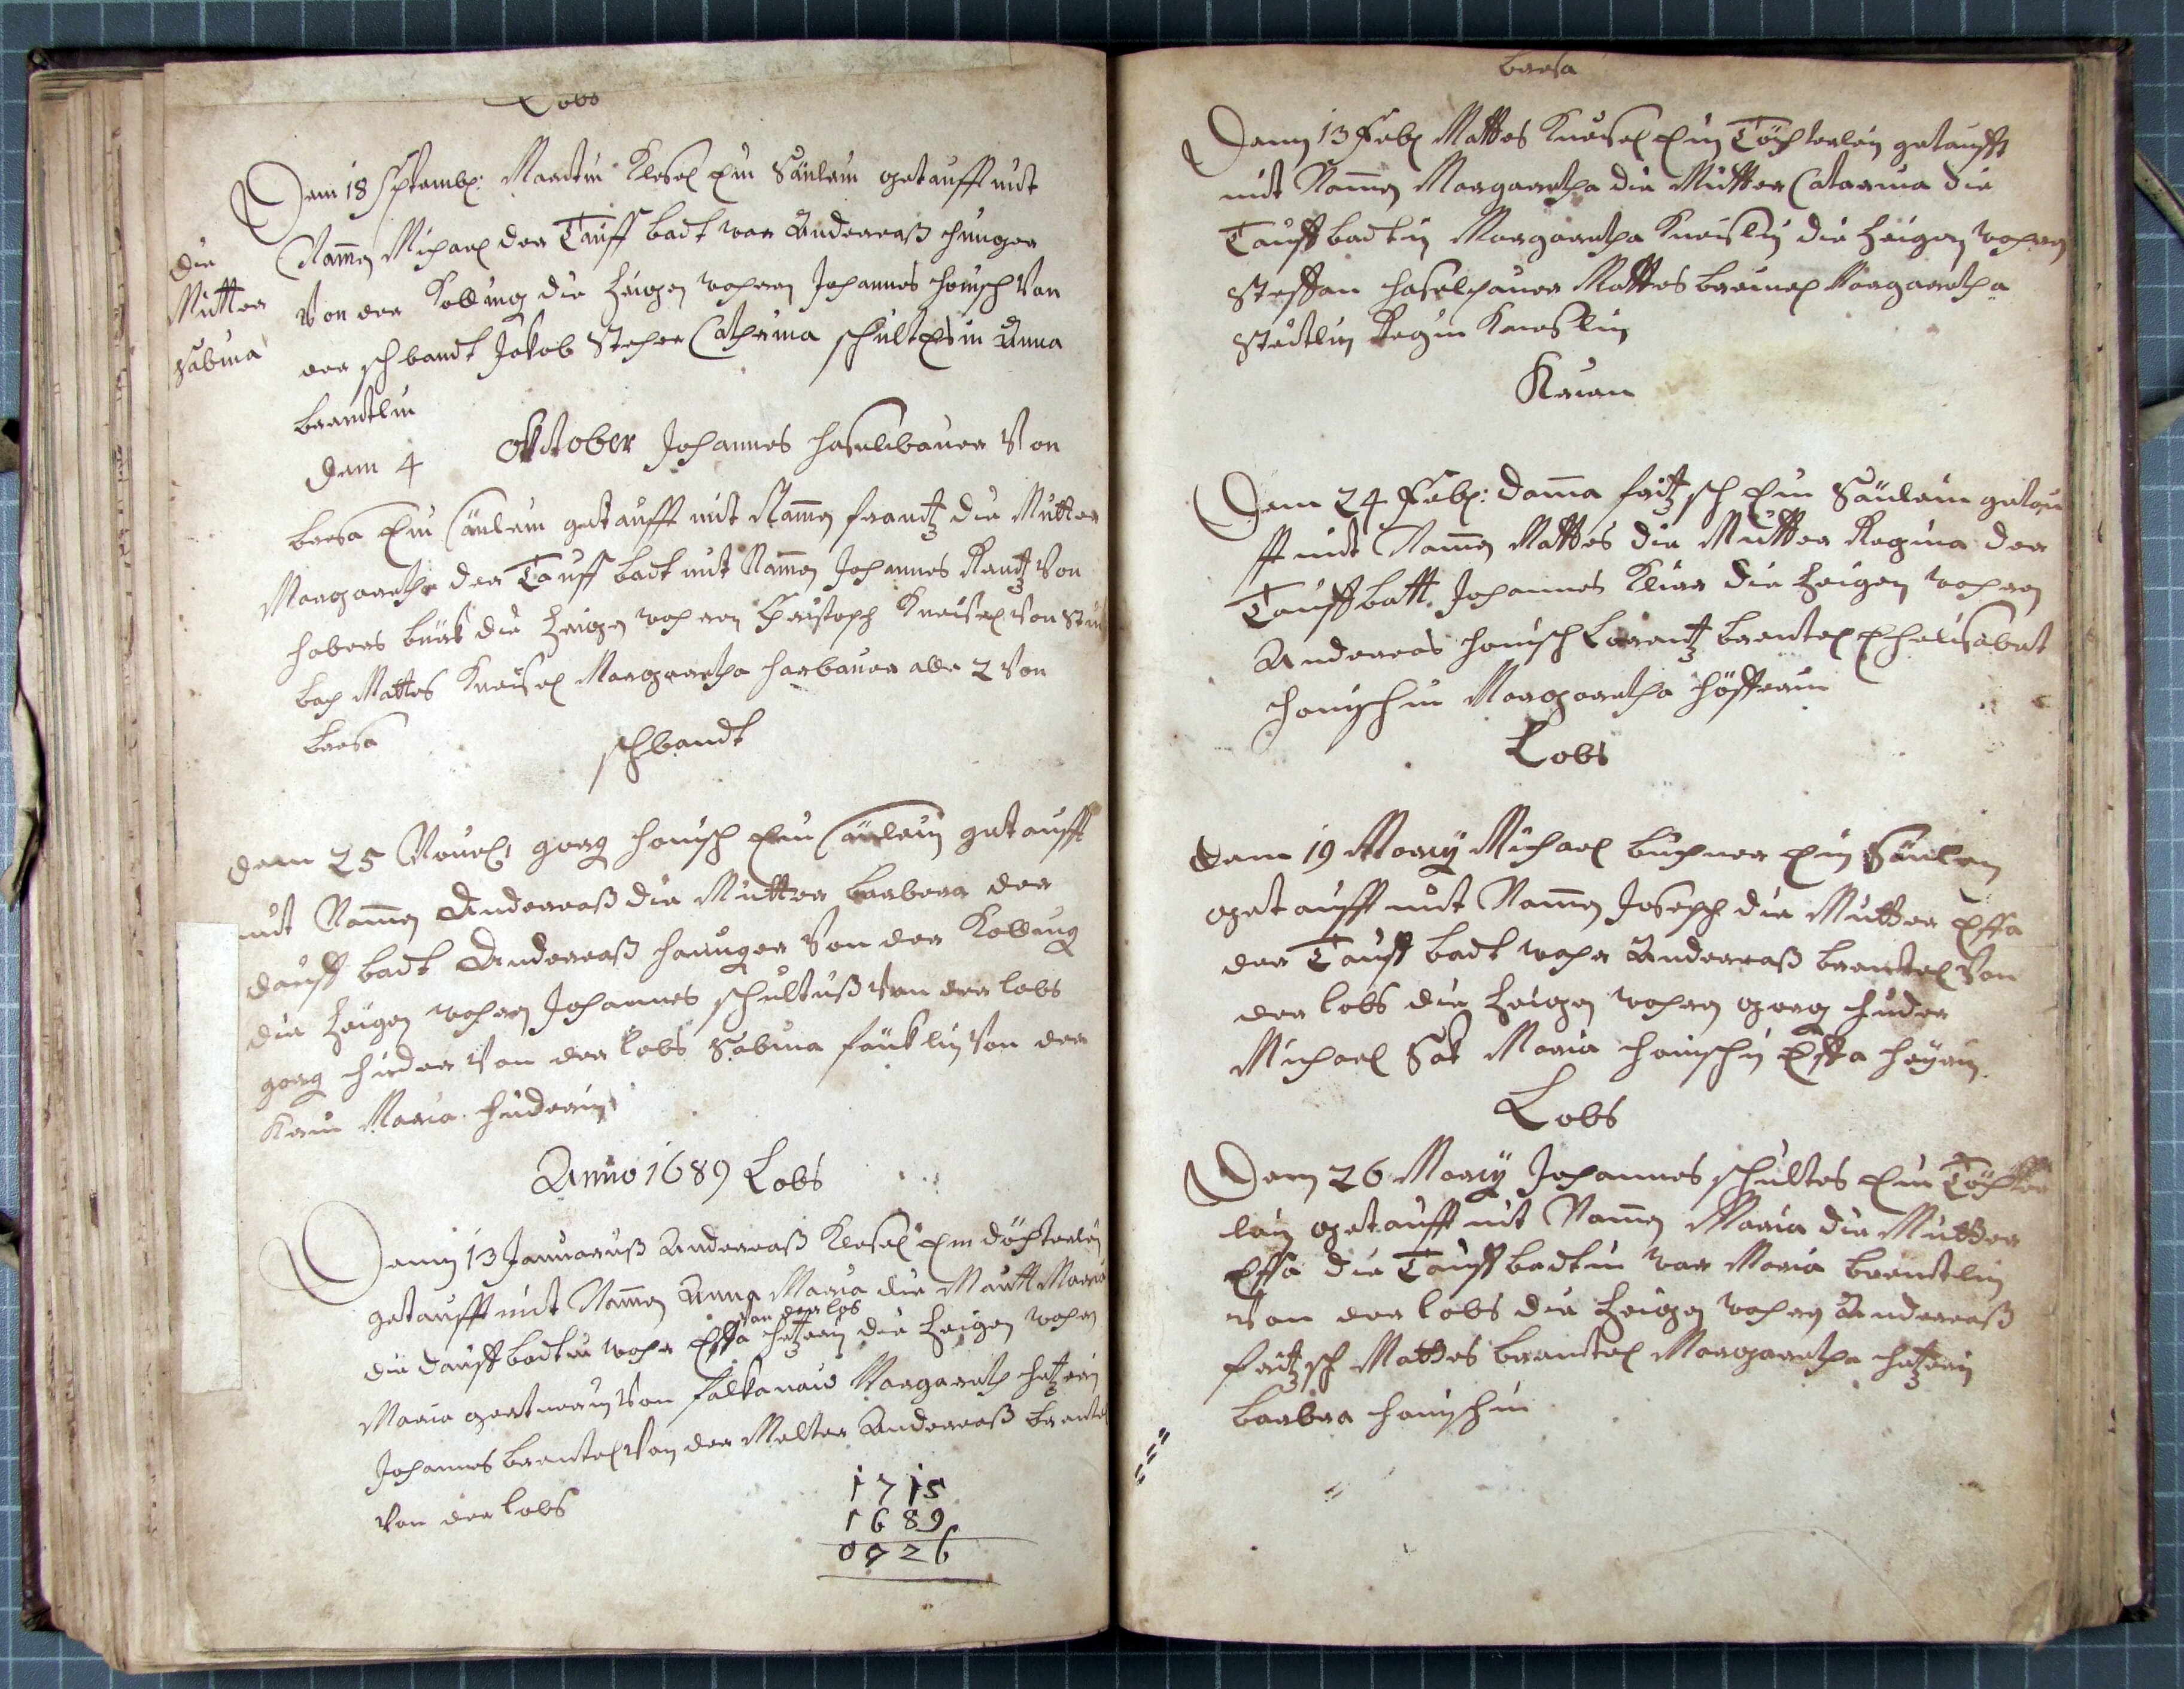 Lobs
Dem 18 Septembr: Mardin Klesel Ein Sänlein getaufft mit
Namen Michael der Tauff badt war Andereaß
die
Mutter
Sabina
Von der Kolling die Zeigen wahren Johannes honisch Von
der schbandt Jakob Catherina schultesin Anna
brandtlin
Dem 4 October Johannes haselbauer Von
bresa Ein Sänlein getaufft mit Namen frantz die Mutter
Margaretha der Tauff badt mit Namen Johannes Rantz Von
die Zeigen wahren Christoph Kneisel Von
Mattes Kneisel Margaretha alle 2 Von
bresa
schbandt
Dem 25 Novel: gorg honisch Ein Sänlein getaufft
mit Namen Andereaß die Mutter barbera der
dauff badt Andereaß Von der Kolling
die Zeigen wahren Johannes schultuß Von der lobs
gorg huder Von der lobs Sabina Von der
Maria huderin
Anno 1689 Lobs
Denn 13 Januariuß Andereaß Klesel Ein döchterlein
getaufft mit Namen Anna Maria die Mautt Maria
von der lobs
die dauff badtin wahr Effa hetzerin die Zeigen wahren
Maria gertnerin Von falkenau Margareth hetzerin
Johannes brantel Von der Malter Andereaß brantel
Von der lobs
1715
1689
0026
bresa
Denn 13 Febr Mattes Kneisel Ein Töchterlein getaufft
mit Namen Margaretha die Mutter Catarina die
Tauff badtin Margaretha Kneislin die Zeigen wahren
Steffan haselpauer Mattes Margaretha
Regin Kneislin
Dem 24 Febr: fritzsch Ein Sänlein getau
fft mit Namen Mattes die Mutter Regina der
Tauff batt Johannes Klier die Zeigen wahren
Andereas honisch Lorentz brantel Ehelisabet
honischin Margaretha
Lobs
Dem 19 Marcij Michael buchner Ein Sänlein
getaufft mit Namen Joseph die Mutter Effa
der Tauff badt wahr Andereaß brantel Von
der lobs die Zeigen wahren georg huder
Michael Maria honischin Effa
Lobs
Dem 26 Marcij Johannes schultes Ein Töchter
lein getaufft mit Namen Maria die Mutter
Effa die Tauff badtin war Maria brandtlin
Von der lobs die Zeigen wahren Andereaß
fritzsch Mattes brantel Margaretha hetzerin
barbra honischin